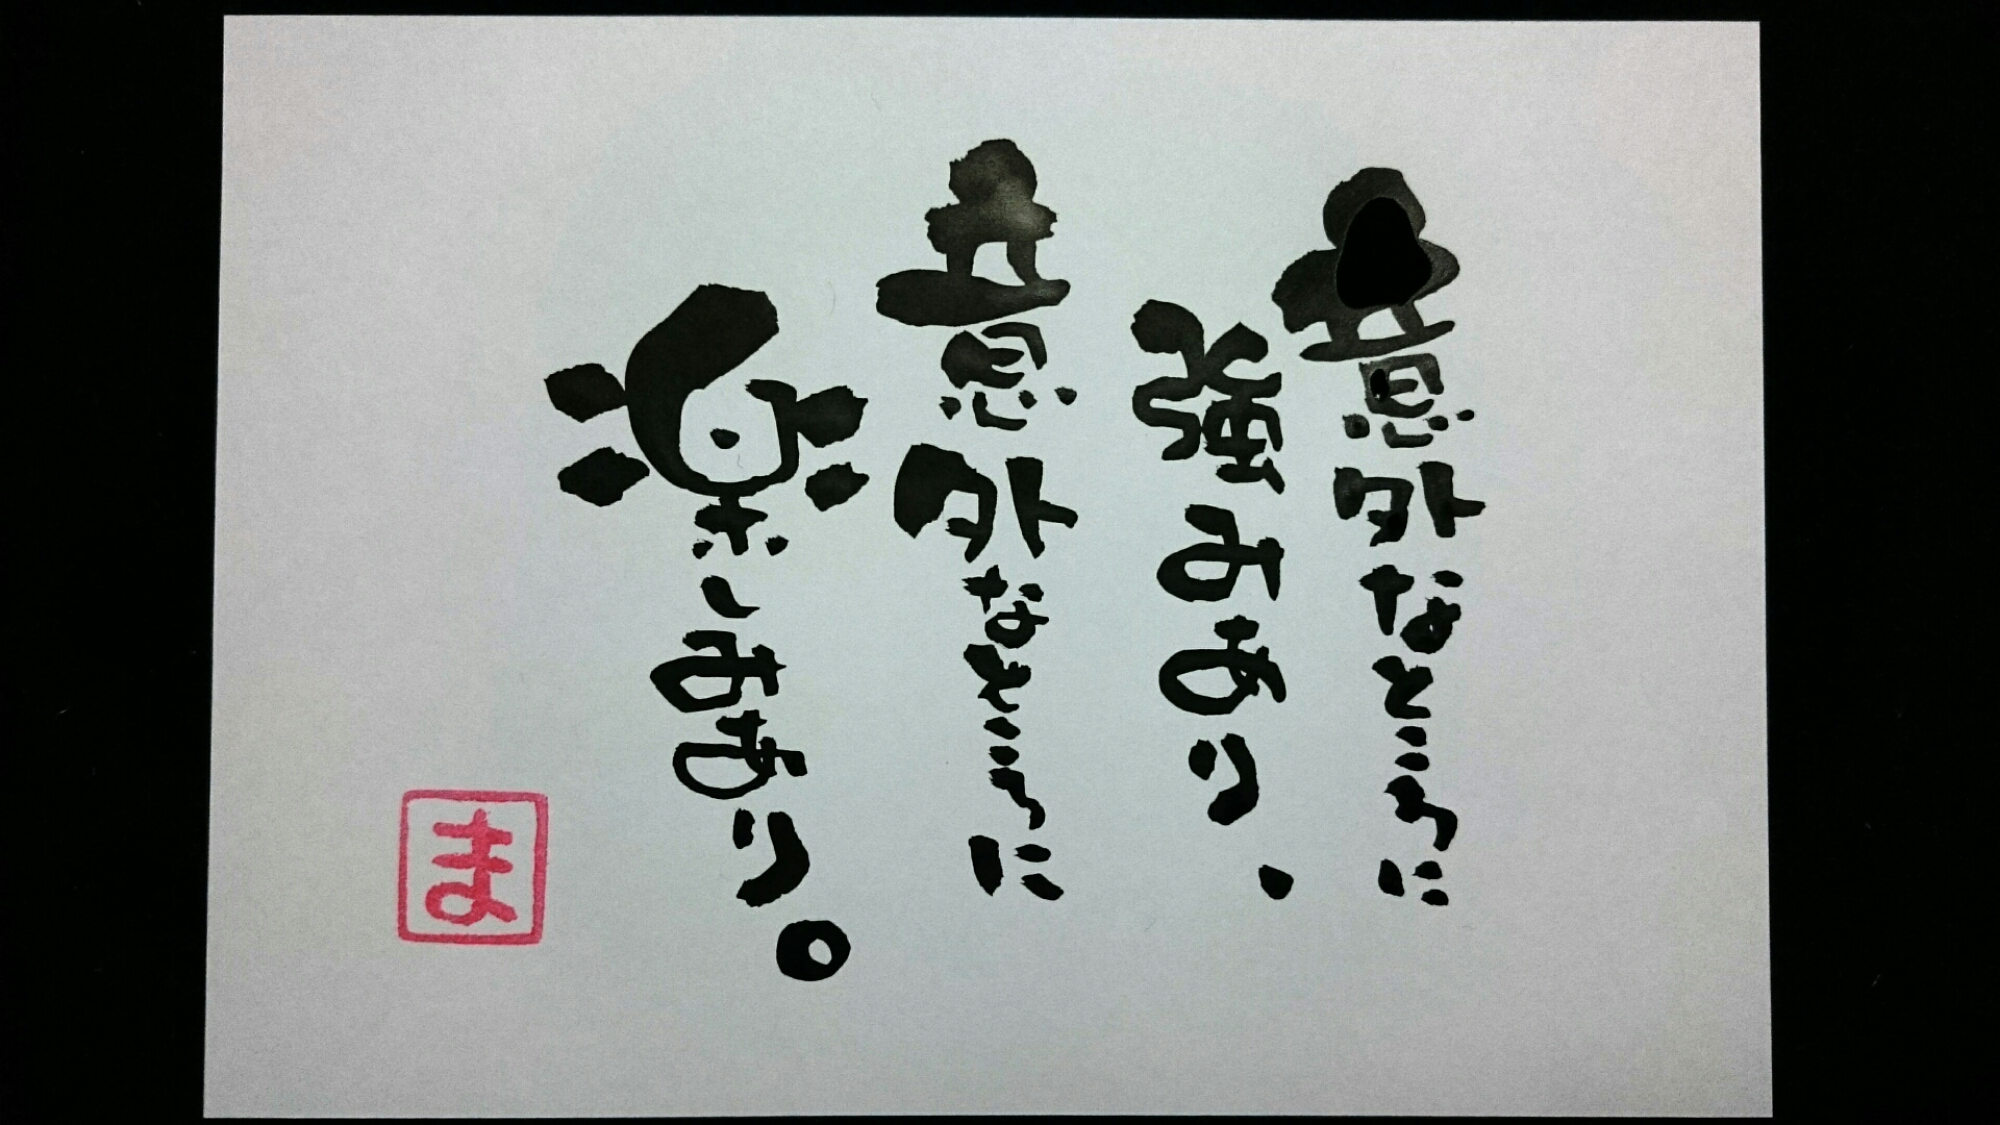 意外なところに
強みあり、
意外なところに
楽しみあり。
ま